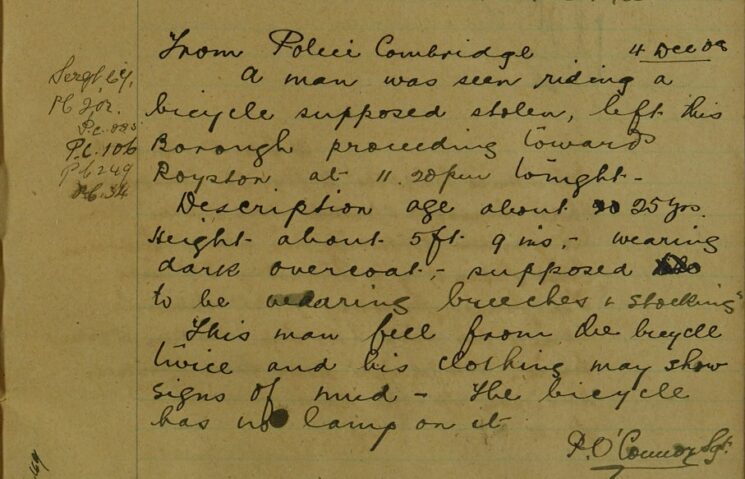 From Police Cambridge 4 Dec 08
A man was seen riding a
bicycle supposed stolen, left this
Borough proceeding towards
Royston at 11.20pm tonight -
Description age about 25 yrs.
Height about 5ft 9 ins, - wearing
dark overcoat, - supposed
to be wearing breeches & stockings
This man fell from the bicycle
twice and his clothing may show
signs of mud - The bicycle
has no lamp on it
P. O'Connor Sgt.
Sergt 69.
P.C.
P.C.
P.C. 106
P.C 249
P.C. 34